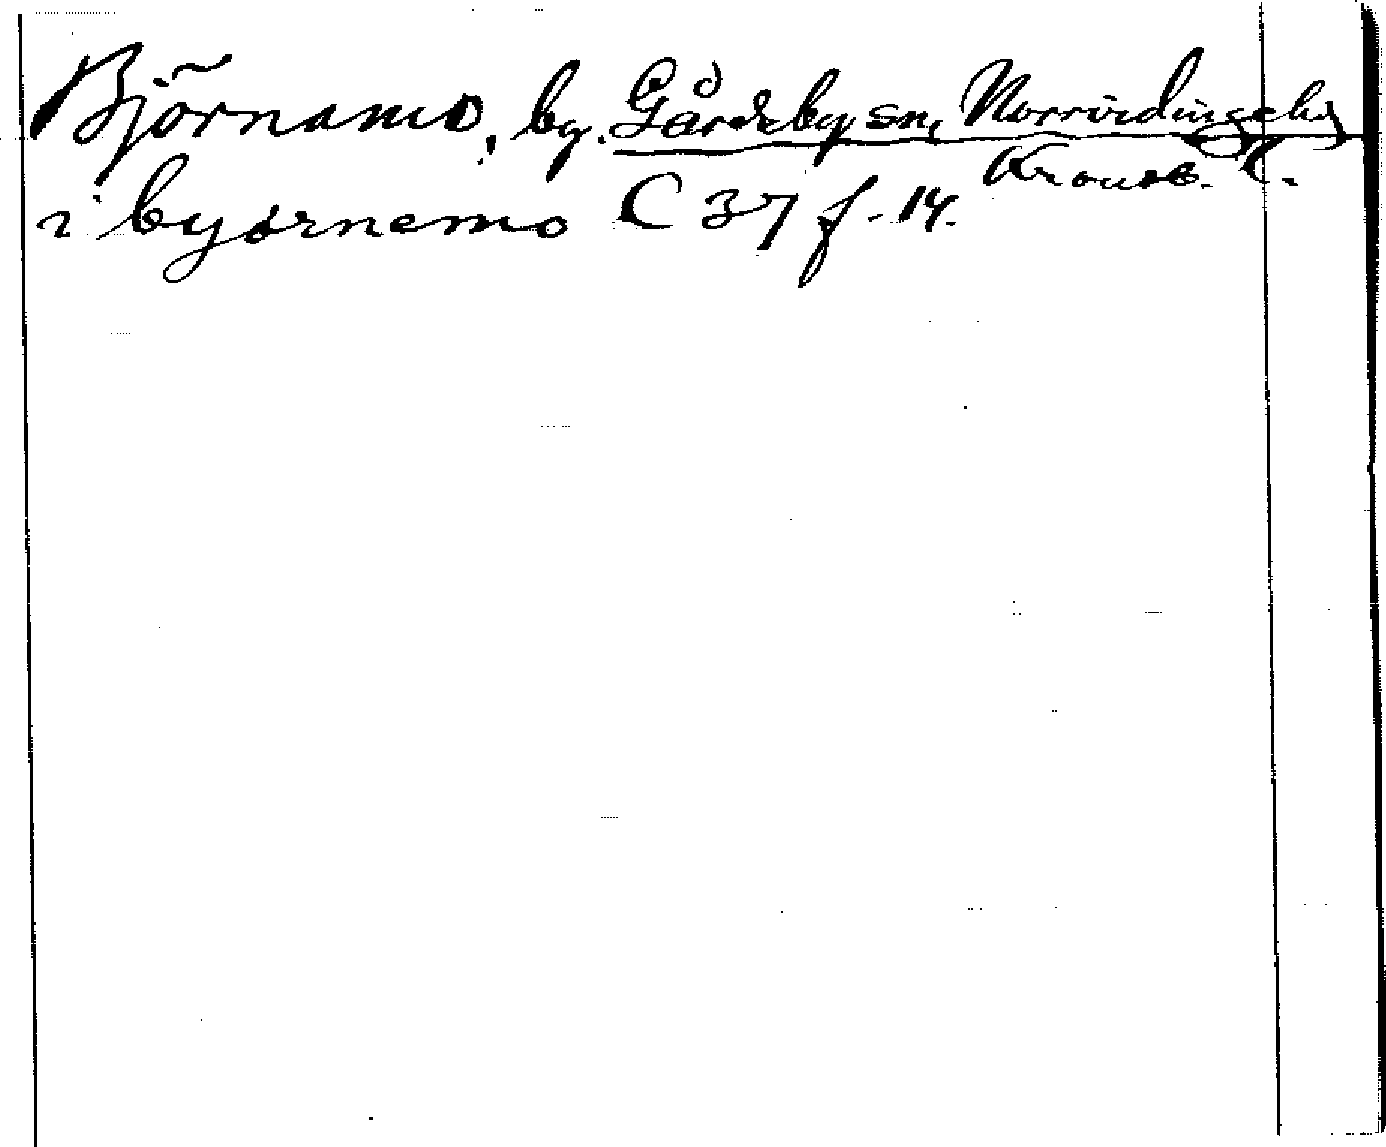 Björnamo, by. Gårdsby sn, Norrvidinge hd
Kronob. l.
i byørnemo C 37 f. 14.